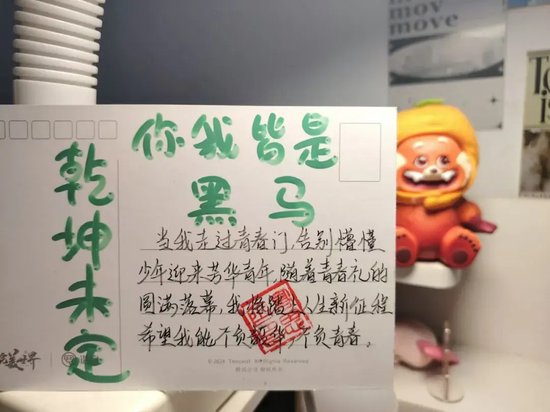 mov
move
乾坤未定
你我皆是
黑马
当我走过青春门,告别懵懂
少年迎来芳华青年,随着青春礼的
圆满落幕,我将踏上人生新征程
希望我能不负韶华,不负青春。
© 2024 Tencent. All Rights Reserved
腾讯公司 版权所有